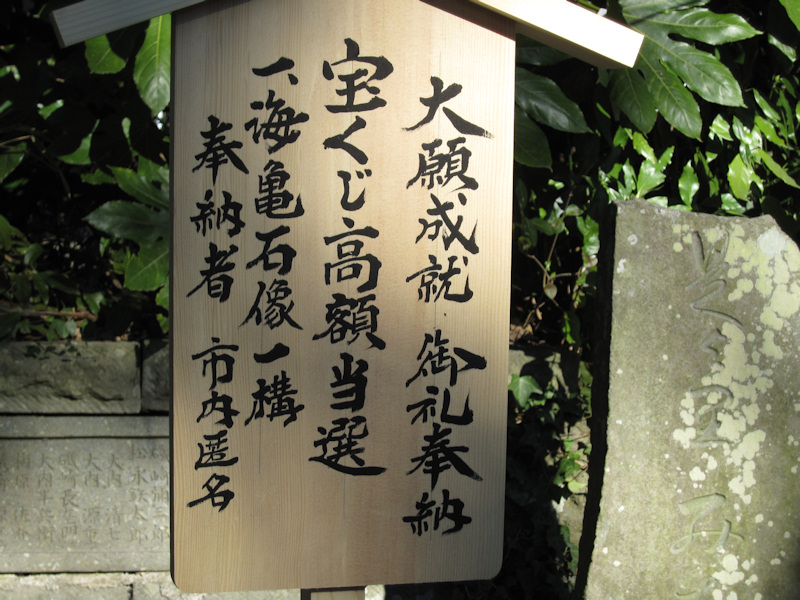 大願成就 御礼奉納
宝くじ高額当選
一、海亀石像一構
奉納者 市内匿名